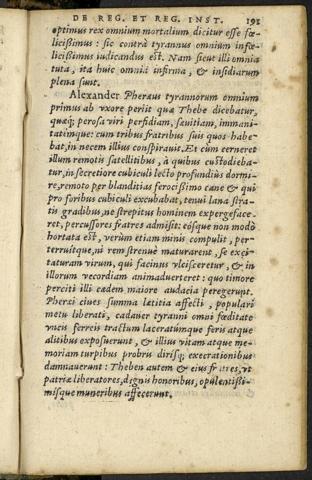 DE REG. ET REG. INST. 191
optimus rex omnium mortalium dicitur esse fœ-
licißimus : sic contrà tyrannus omnium infœ-
licißimus iudicandus est. Nam sicut illi omnia
tuta, ita huic omnia infirma, & insidiarum
plena sunt.
Alexander Pheræus tyrannorum omnium
primus ab vxore periit quæ Thebe dicebatur,
quæq; perosa viri perfidiam, sæuitiam, immani-
tatémque: cum tribus fratribus suis quos habe-
bat, in necem illius conspirauit. Et cùm cerneret
illum remotis satellitibus, à quibus custodieba-
tur, in secretiore cubiculi lecto profundiùs dormi-
re, remoto per blanditias ferocißimo cane & qui
pro foribus cubiculi excubabat, tenui lana stra-
tis gradibus, ne strepitus hominem expergeface-
ret, percussores fratres admisit: eósque non modò
hortata est, verùm etiam minis compulit, per-
terruitque, ni rem strenuè maturarent, se exci-
taturam virum, qui facinus vlcisceretur, & in
illorum vecordiam animaduerteret : quo timore
perciti illi eadem maiore audacia peregerunt.
Pheræi eius summa lætitia affecti, populari
metu liberati, cadauer tyranni omni fœditate
vncis ferreis tractum laceratúmque feris atque
alitibus exposuerunt, & illius vitam atque me-
moriam turpibus probris dirisq; execrationibus
damnauerunt : Theben autem & eius fratres, vt
patriæ liberatores, dignis honoribus, opulentißi-
mísque muneribus affecerunt.